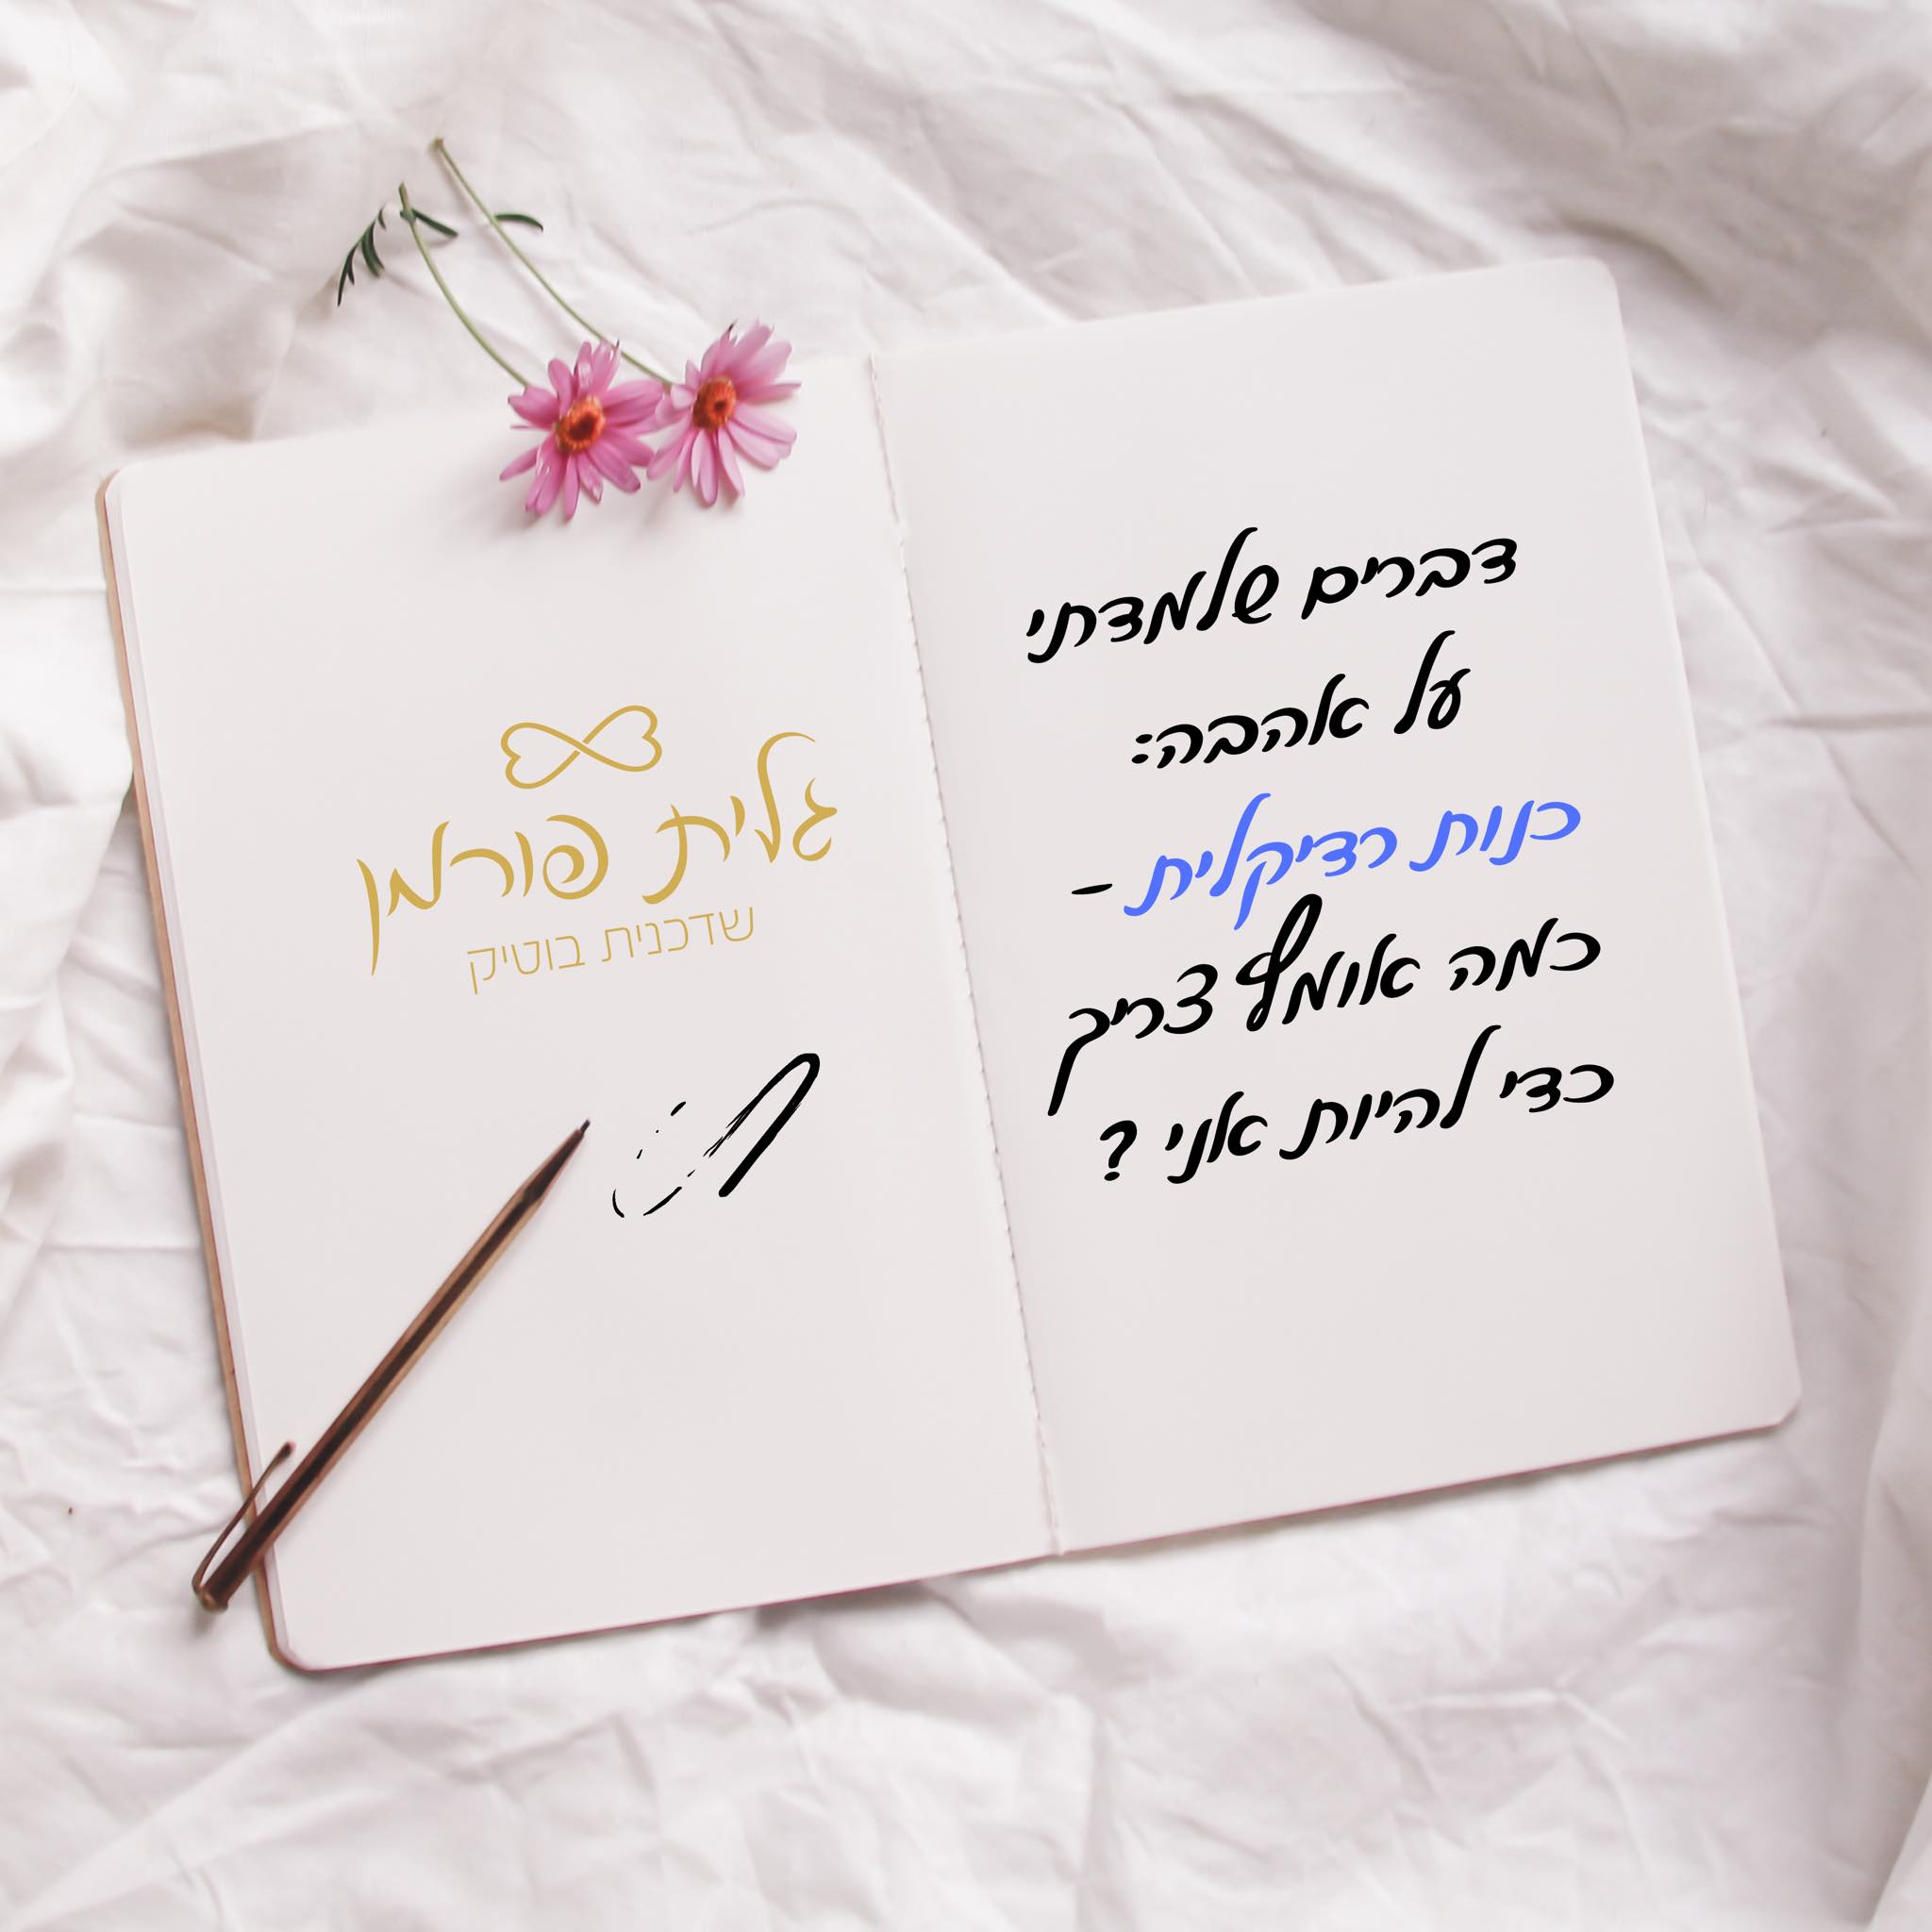 דברים שלמדתי
על אהבה:
כנות רדיקלית -
כמה אומץ צריך
כדי להיות אני ?
גלית פורמן
שדכנית בוטיק